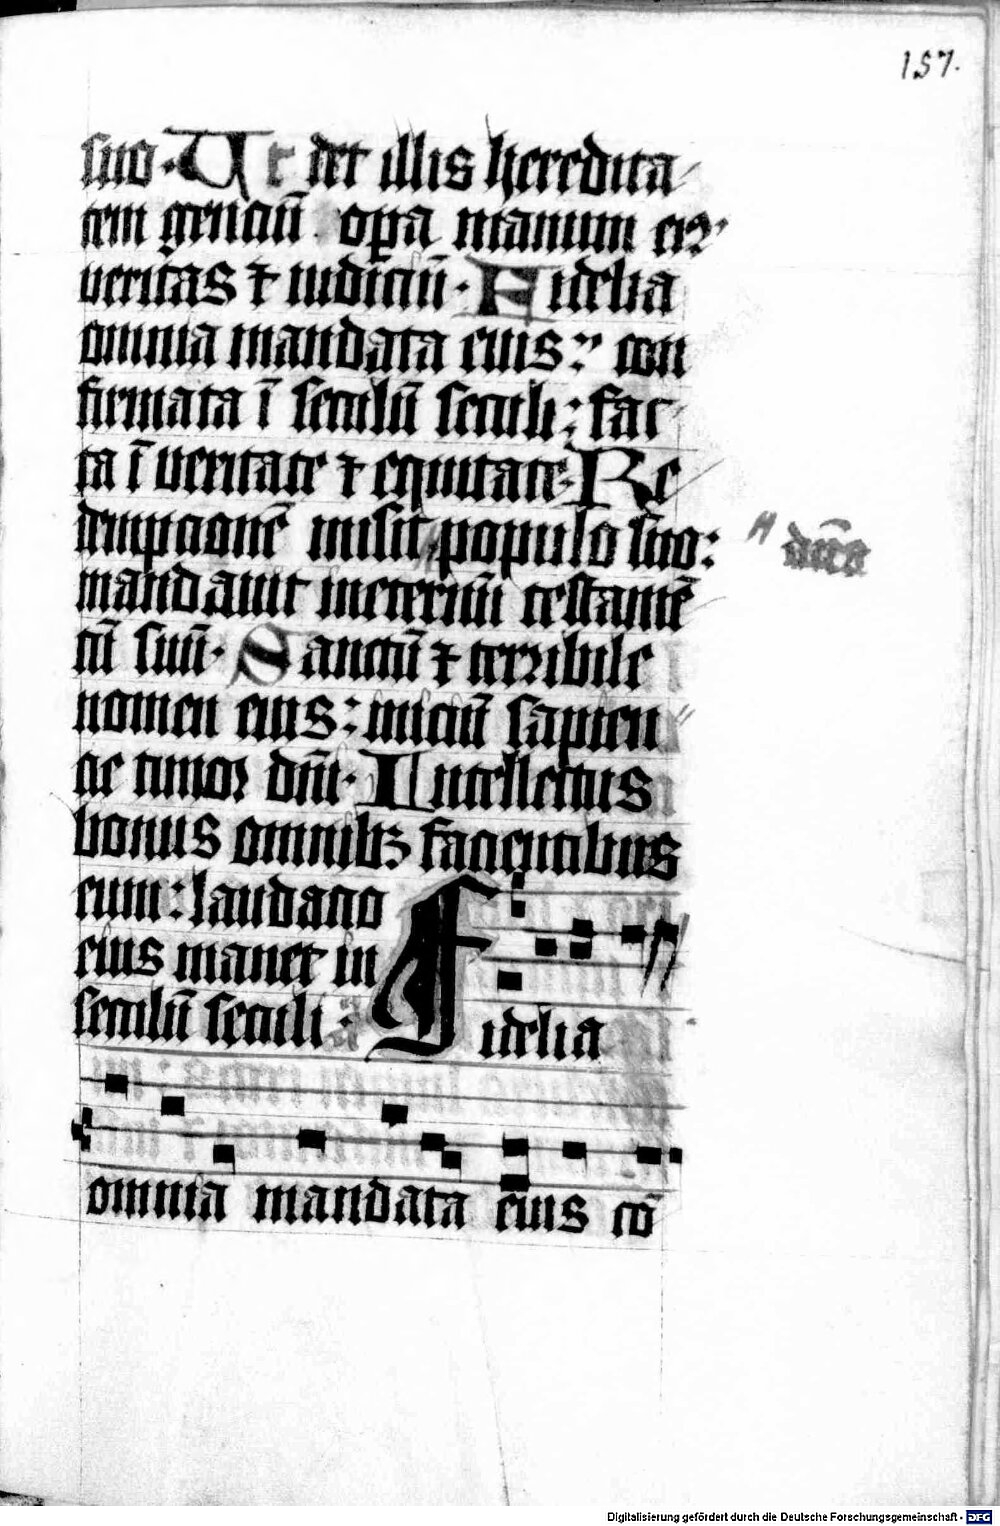 157.
suo. Ut det illis heredita
tem genciū opa manuum eiꝰ
veritas ⁊ iudiciū. Fidelia
omnia mandata eius: con
firmata ī seculū seculi: fac
ta ī veritate ⁊ equitate. Re
dempcionē misit populo suo:
dn̄s
mandavit ineternū testamē
tū suū. Sanctū ⁊ terribile
nomen eius: iniciū sapien
cie timor dn̄i. Intellectus
bonus omnibꝫ facientibus
eum: laudacio
eius manet in
seculū seculi:
Fidelia
omnia mandata eius cō
Digitalisierung gefördert durch die Deutsche Forschungsgemeinschaft - DFG